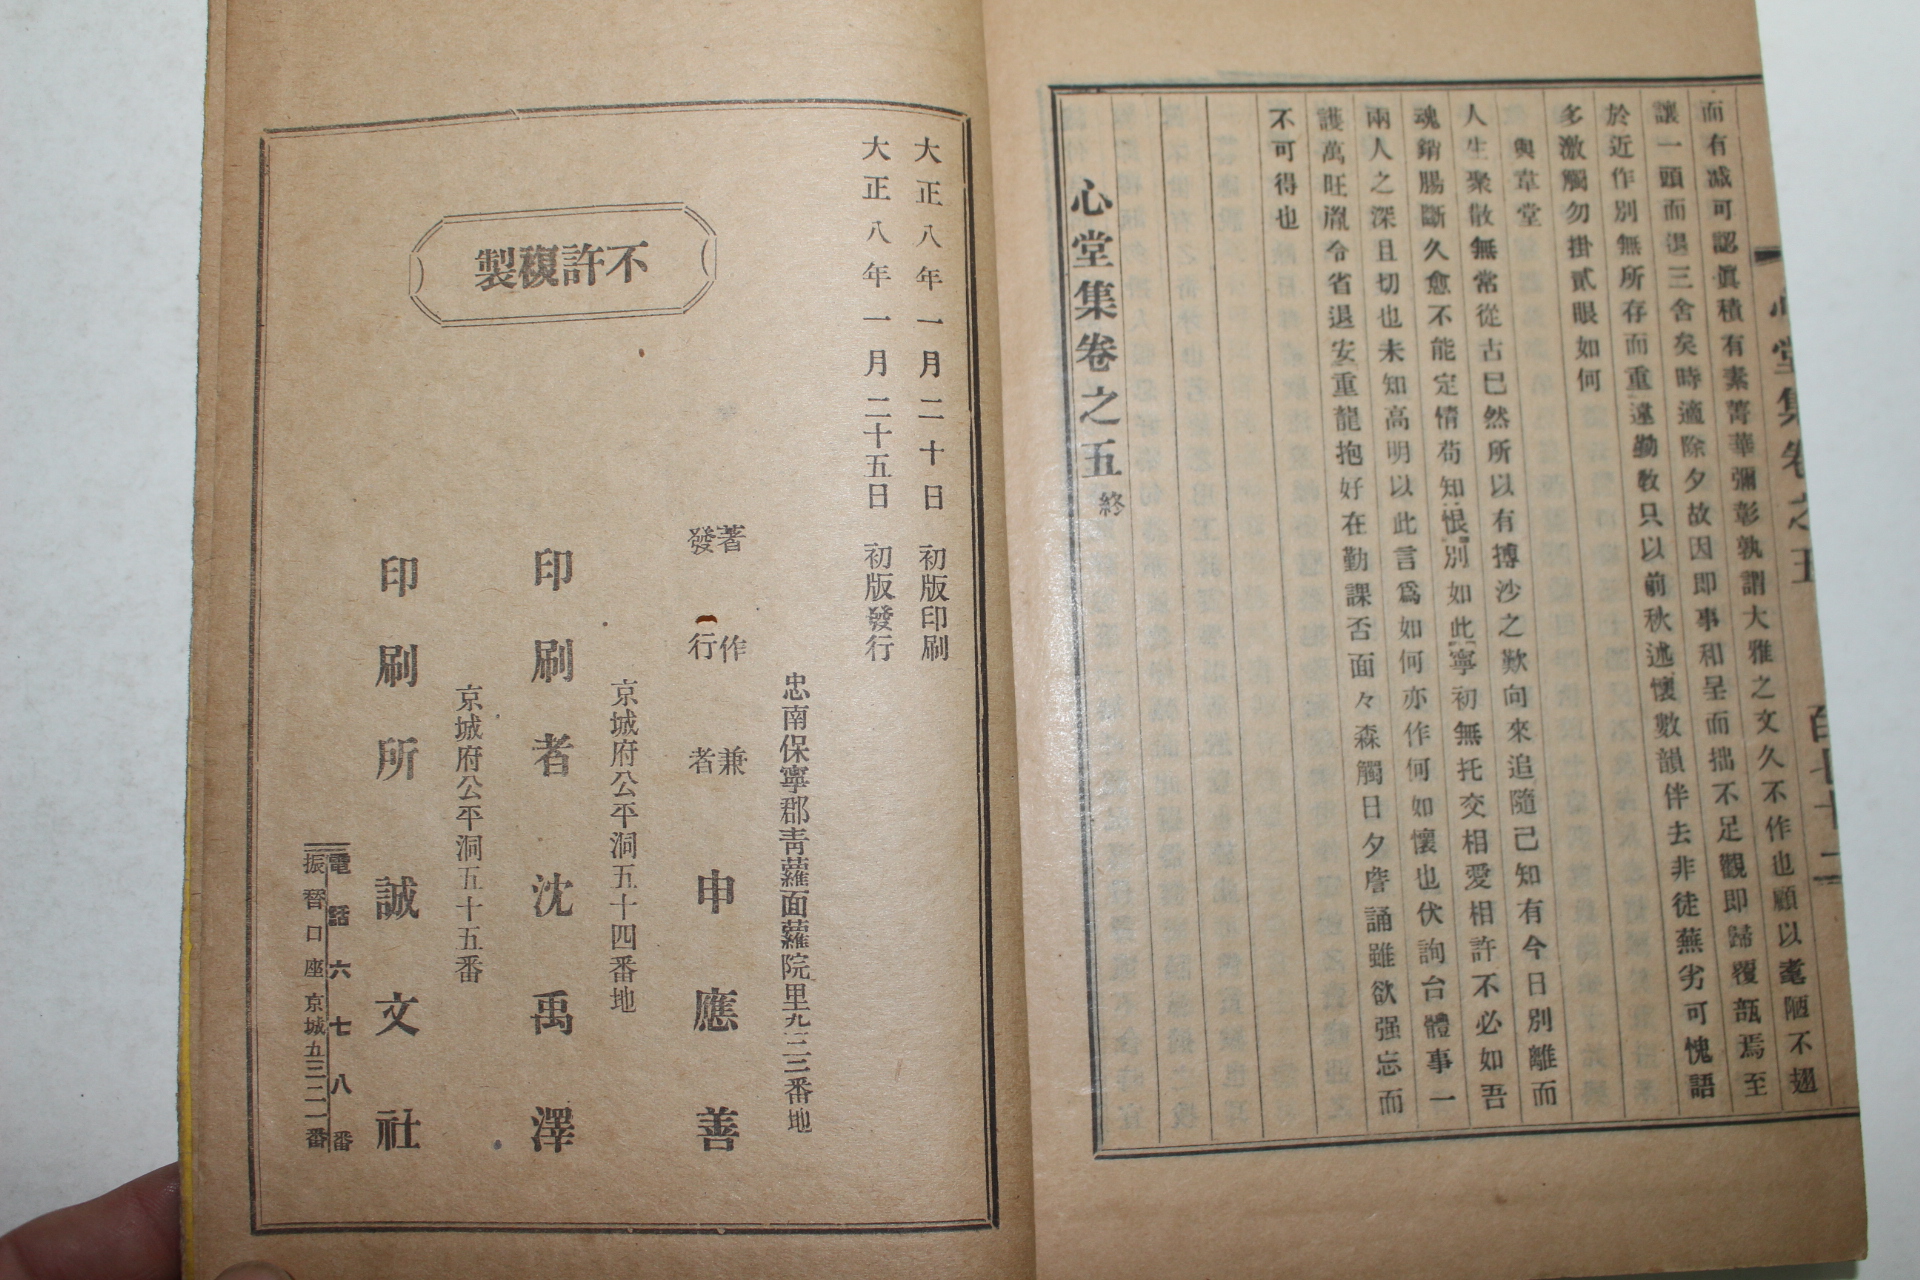 而有减可認眞積有素菁華彌彰孰謂大雅之文久不作也顧以耄陋不翅
讓一頭而退三舍矣時適除夕故因即事和呈而拙不足觀即歸覆瓿焉至
於近作別無所存而重違勤敎只以前秋述懷數韻伴去非徒蕪劣可愧語
多激觸勿掛貳眼如何
與韋堂
人生聚散無常從古已然所以有搏沙之歎向來追隨己知有今日別離而
魂銷腸斷久愈不能定情苟知恨別如此寧初無托交相愛相許不必如吾
兩人之深且切也未知高明以此言爲如何亦作何如懷也伏詢台體事一
護萬旺胤令省退安重龍抱好在勤課否面々森觸日夕庽誦雖欲强忘而
不可得也
心堂集卷之五 終
大正八年一月二十日 初版印刷
大正八年一月二十五日 初版發行
不許複製
忠南保寧郡靑蘿面蘿院里九三三番地
著作兼
發行者 申應善
京城府公平洞五十四番地
印刷者 沈禹澤
京城府公平洞五十五番
印刷所 誠文社
電話六七八番
振替口座京城九三二一番